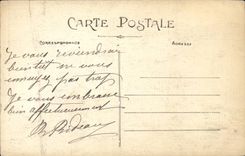 CARTE POSTALE
CORRESPONDANCE
ADRESSE
Je vous reviendrai
bientôt ne vous
ennuyez pas trop
Je vous embrasse
bien affectueusement